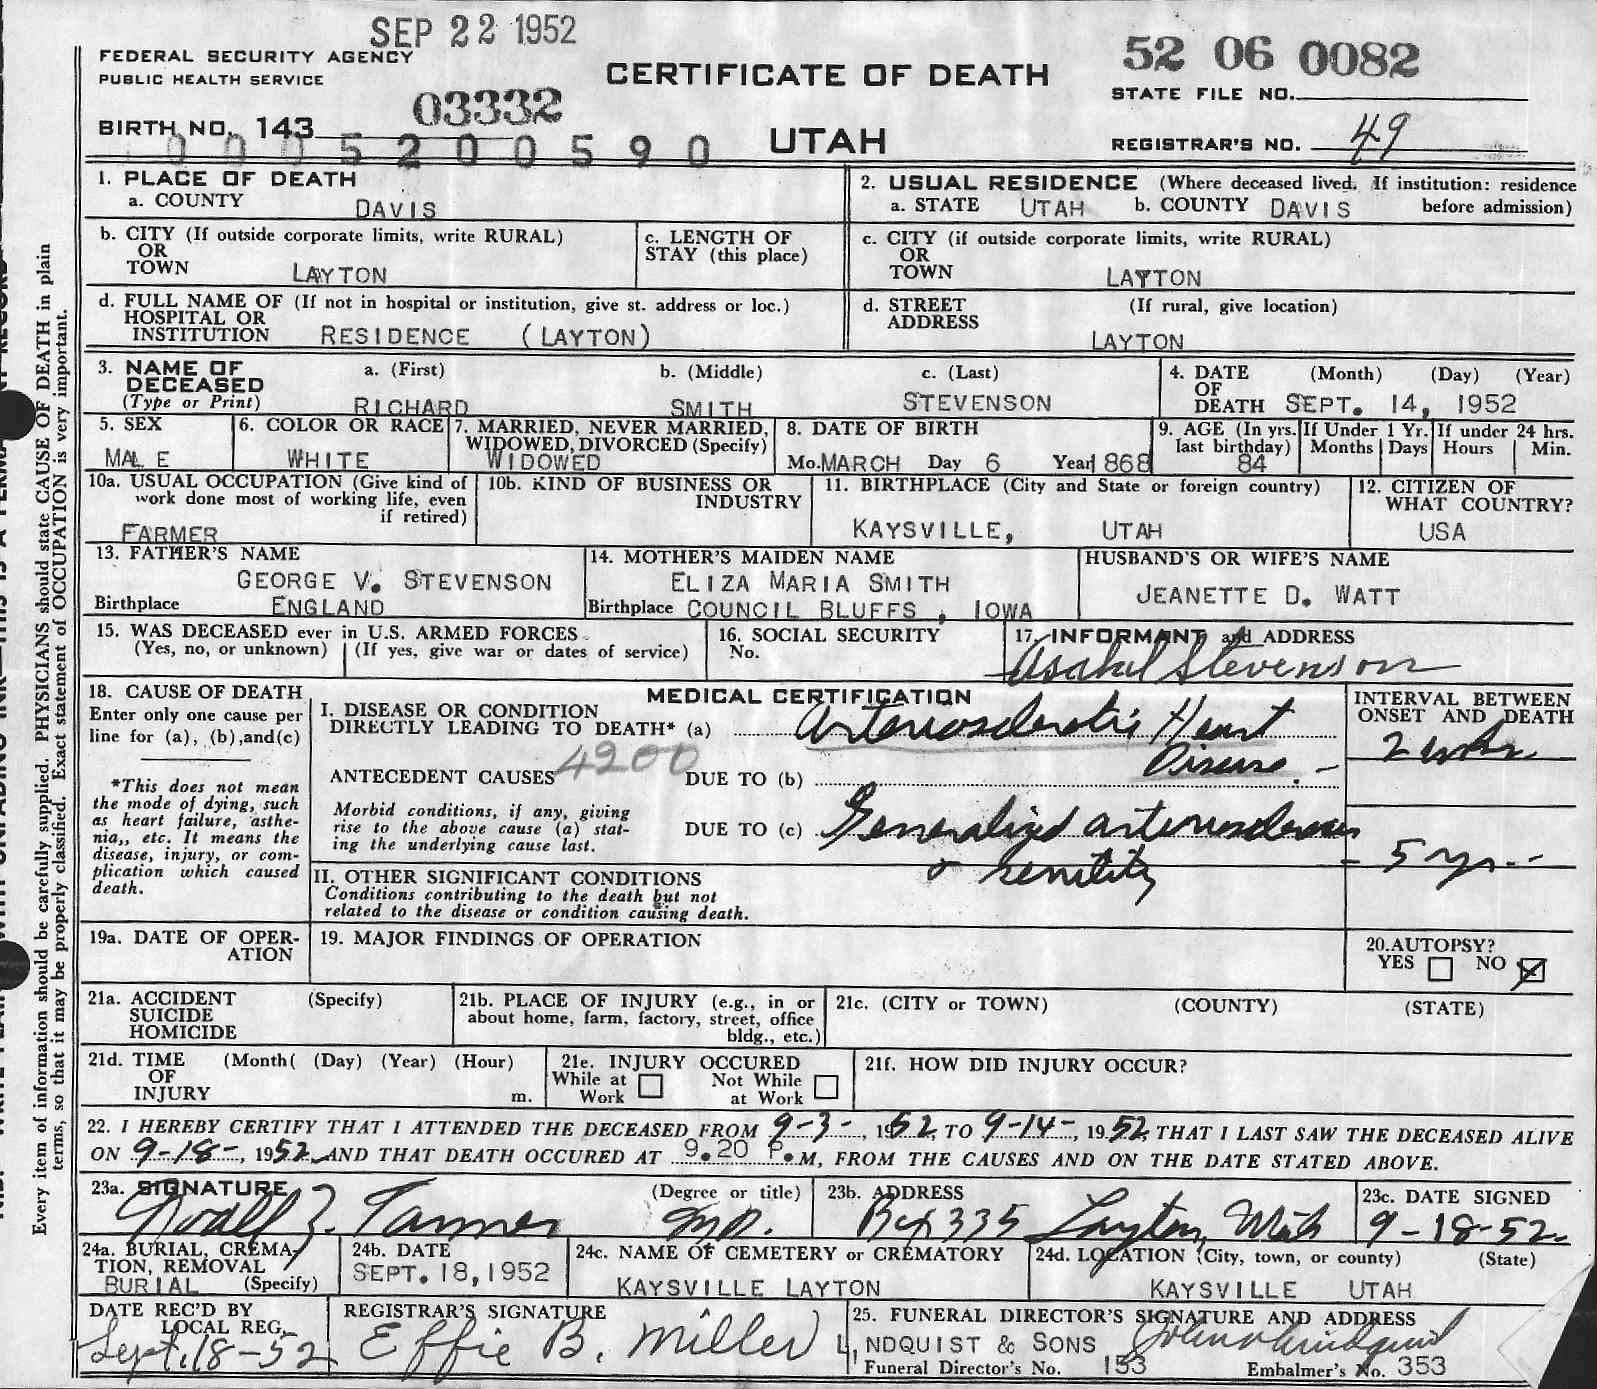 SEP 22 1952
FEDERAL SECURITY AGENCY
PUBLIC HEALTH SERVICE
CERTIFICATE OF DEATH
UTAH
52 06 0082
STATE FILE NO.
03332
BIRTH NO. 143
0005200590
REGISTRAR'S NO. 49
1. PLACE OF DEATH
a. COUNTY DAVIS
2. USUAL RESIDENCE (Where deceased lived. If institution: residence before admission)
a. STATE UTAH b. COUNTY DAVIS
b. CITY (If outside corporate limits, write RURAL)
OR
TOWN LAYTON
c. LENGTH OF
STAY (this place)
c. CITY (if outside corporate limits, write RURAL)
OR
TOWN LAYTON
d. FULL NAME OF (If not in hospital or institution, give st. address or loc.)
HOSPITAL OR
INSTITUTION RESIDENCE (LAYTON)
d. STREET (If rural, give location)
ADDRESS
LAYTON
3. NAME OF a. (First) b. (Middle) c. (Last)
DECEASED
(Type or Print) RICHARD SMITH STEVENSON
4. DATE (Month) (Day) (Year)
OF
DEATH SEPT. 14, 1952
5. SEX
MALE
6. COLOR OR RACE
WHITE
7. MARRIED, NEVER MARRIED,
WIDOWED, DIVORCED (Specify)
WIDOWED
8. DATE OF BIRTH
Mo. MARCH Day 6 Year 1868
9. AGE (In yrs. last birthday)
84
If Under 1 Yr.
Months Days
If under 24 hrs.
Hours Min.
10a. USUAL OCCUPATION (Give kind of
work done most of working life, even
if retired)
FARMER
10b. KIND OF BUSINESS OR
INDUSTRY
11. BIRTHPLACE (City and State or foreign country)
KAYSVILLE, UTAH
12. CITIZEN OF
WHAT COUNTRY?
USA
13. FATHER'S NAME
GEORGE V. STEVENSON
Birthplace ENGLAND
14. MOTHER'S MAIDEN NAME
ELIZA MARIA SMITH
Birthplace COUNCIL BLUFFS, IOWA
HUSBAND'S OR WIFE'S NAME
JEANETTE D. WATT
15. WAS DECEASED ever in U.S. ARMED FORCES
(Yes, no, or unknown) (If yes, give war or dates of service)
16. SOCIAL SECURITY
No.
17. INFORMANT and ADDRESS
Asahel Stevenson
18. CAUSE OF DEATH
Enter only one cause per
line for (a), (b), and (c)
*This does not mean
the mode of dying, such
as heart failure, asthe-
nia,, etc. It means the
disease, injury, or com-
plication which caused
death.
MEDICAL CERTIFICATION
I. DISEASE OR CONDITION
DIRECTLY LEADING TO DEATH* (a) Arteriosclerotic Heart
Disease
4200
ANTECEDENT CAUSES
DUE TO (b)
Morbid conditions, if any, giving
rise to the above cause (a) stat-
ing the underlying cause last.
DUE TO (c) Generalized arteriosclerosis
& senility
II. OTHER SIGNIFICANT CONDITIONS
Conditions contributing to the death but not
related to the disease or condition causing death.
INTERVAL BETWEEN
ONSET AND DEATH
2 wks.
5 yr.
19a. DATE OF OPER-
ATION
19. MAJOR FINDINGS OF OPERATION
20. AUTOPSY?
YES NO
21a. ACCIDENT (Specify)
SUICIDE
HOMICIDE
21b. PLACE OF INJURY (e.g., in or
about home, farm, factory, street, office
bldg., etc.)
21c. (CITY or TOWN) (COUNTY) (STATE)
21d. TIME (Month( (Day) (Year) (Hour)
OF
INJURY m.
21e. INJURY OCCURED
While at Work Not While at Work
21f. HOW DID INJURY OCCUR?
22. I HEREBY CERTIFY THAT I ATTENDED THE DECEASED FROM 9-3-, 1952, TO 9-14-, 1952, THAT I LAST SAW THE DECEASED ALIVE
ON 9-18-, 1952 AND THAT DEATH OCCURED AT 9.20 P.M, FROM THE CAUSES AND ON THE DATE STATED ABOVE.
23a. SIGNATURE (Degree or title)
Noall Z. Tanner M.D.
23b. ADDRESS
Box 335 Layton, Utah
23c. DATE SIGNED
9-18-52
24a. BURIAL, CREMA-
TION, REMOVAL
BURIAL (Specify)
24b. DATE
SEPT. 18, 1952
24c. NAME OF CEMETERY or CREMATORY
KAYSVILLE LAYTON
24d. LOCATION (City, town, or county) (State)
KAYSVILLE UTAH
DATE REC'D BY
LOCAL REG.
Sept. 18-52
REGISTRAR'S SIGNATURE
Effie B. Miller
25. FUNERAL DIRECTOR'S SIGNATURE AND ADDRESS
LINDQUIST & SONS John Lindquist
Funeral Director's No. 153 Embalmer's No. 353
Every item of information should be carefully supplied. PHYSICIANS should state CAUSE OF DEATH in plain
terms, so that it may be properly classified. Exact statement of OCCUPATION is very important.